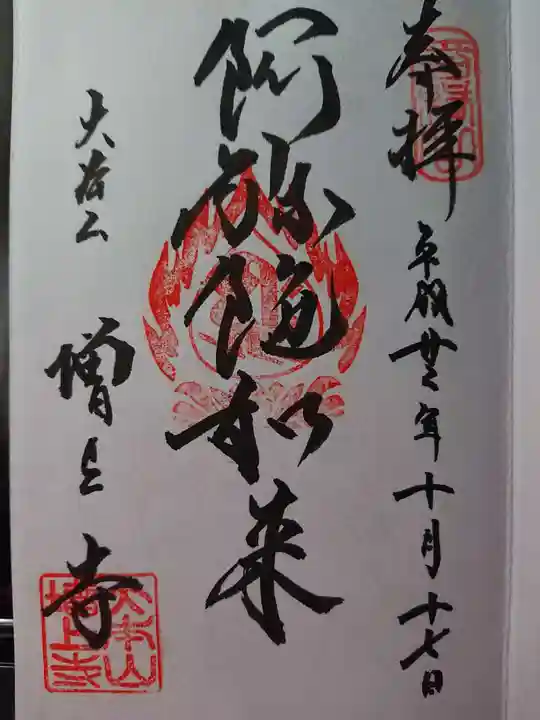 奉拝
平成廿三年十月十七日
阿弥陀如来
大本山
増上寺
大本山
増上寺